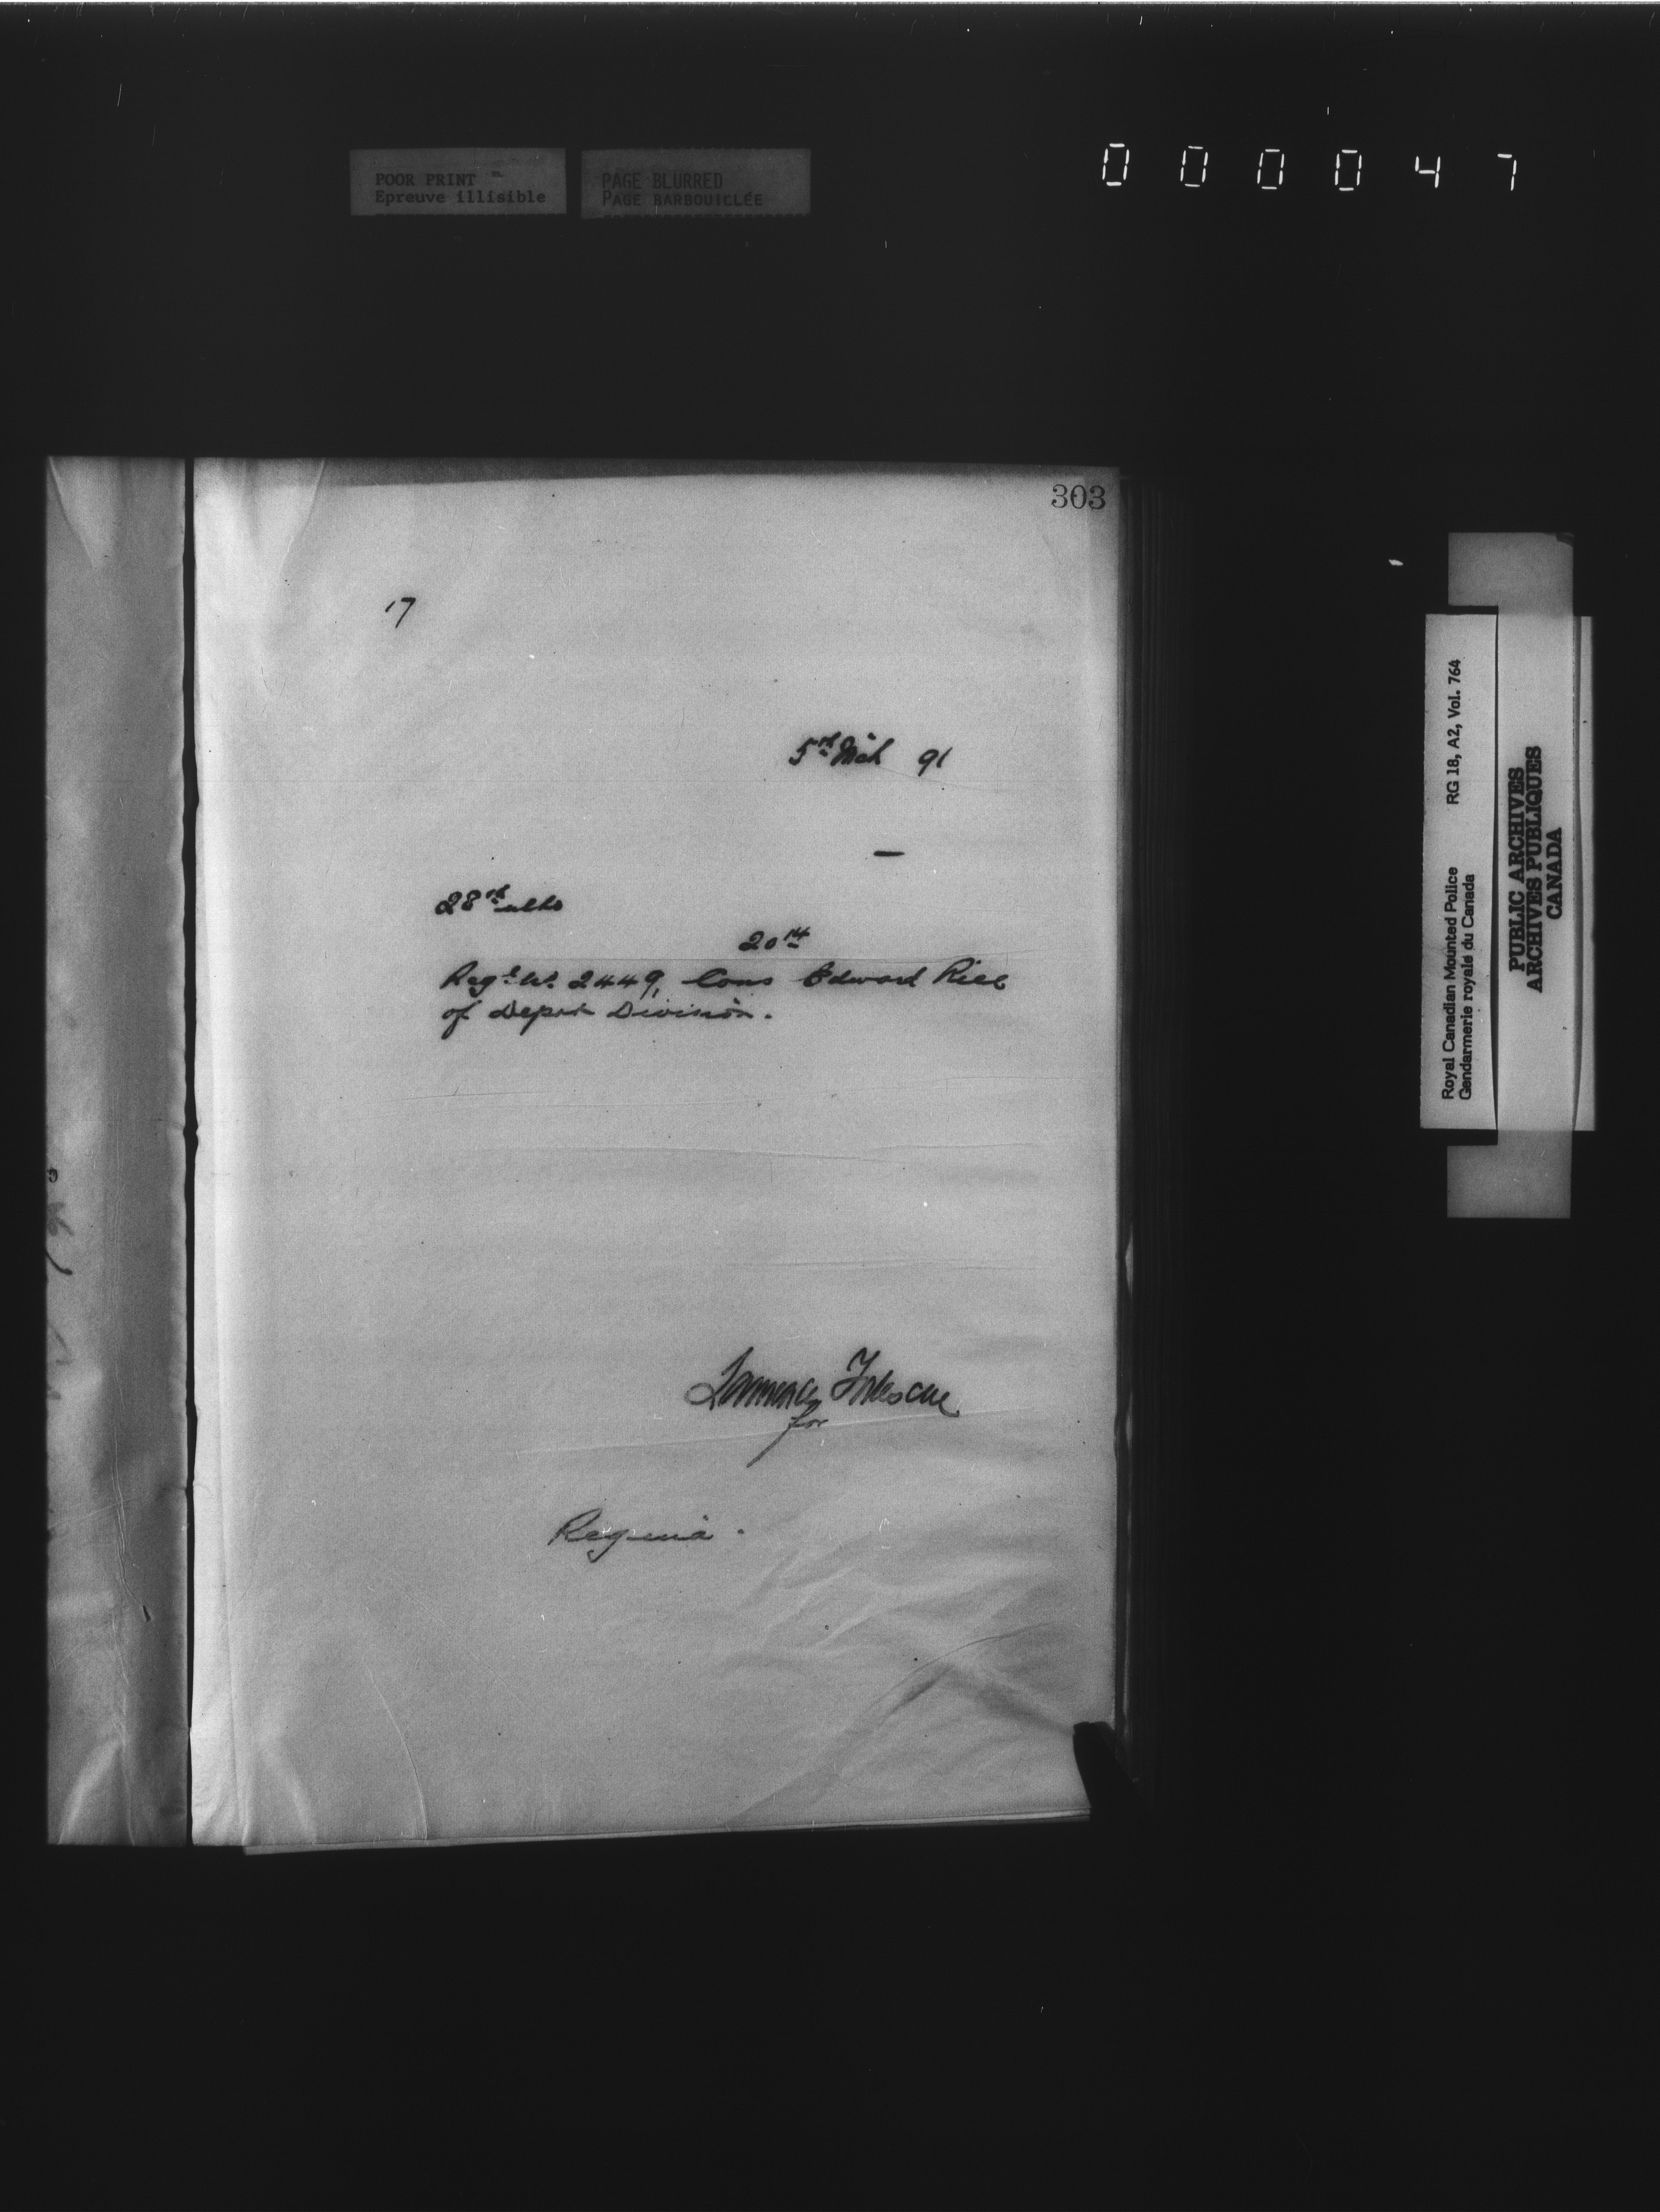 0 0 0 0 4 7
POOR PRINT
Epreuve illisible
PAGE BLURRED
PAGE BARBOUILLÉE
303
17
5th Mch 91
—
28th ulto
20th
Regtl No. 2449, Cons Edward Rice
of Depot Division.
Lawrence Fortescue
for
Regina.
Royal Canadian Mounted Police RG 18, A2, Vol. 764
Gendarmerie royale du Canada
PUBLIC ARCHIVES
ARCHIVES PUBLIQUES
CANADA